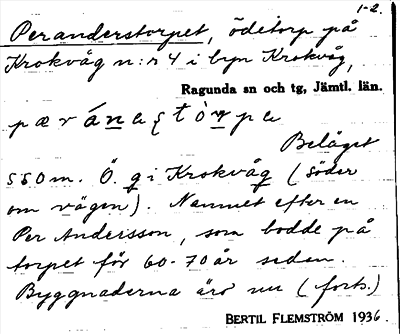 1-2.
Peranderstorpet, ödetorp på
Krokvåg n:r 4 i byn Krokvåg,
Ragunda sn och tg, Jämtl. län.
Beläget
550m. Ö. g i Krokvåg (söder
om vägen). Namnet efter en
Per Andersson, som bodde på
torpet för 60-70 år sedan.
Byggnaderna äro nu (forts.)
BERTIL FLEMSTRÖM 1936.